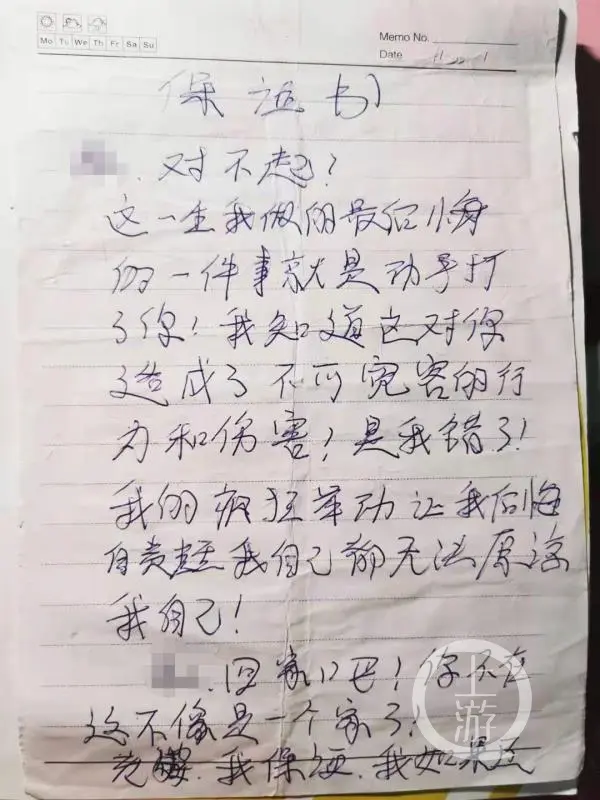 Memo No.
Mo Tu We Th Fr Sa Su
Date
保证书
对不起!
这一生我做的最后悔
的一件事就是动手打
了你!我知道这对你
造成了不可宽容的行
为和伤害!是我错了!
我的疯狂举动让我后悔
自责 我自己都无法原谅
我自己!
回家吧!你不在
这不像是一个家了!
我保证.我如果
上游